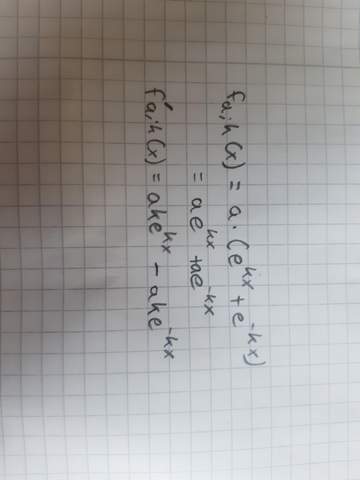 f_{a;k}(x) = a · (e^{kx} + e^{-kx})
= ae^{kx} + ae^{-kx}
f'_{a;k}(x) = ake^{kx} - ake^{-kx}